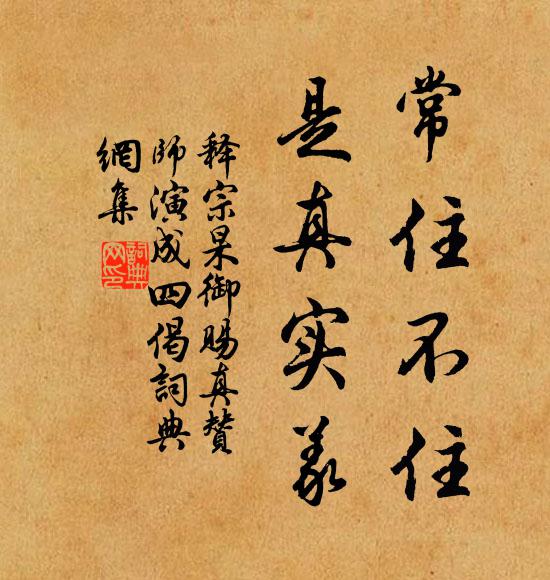 常住不住
是真实义
释宗杲御赐真赞
师演成四偈词典
網集
詞典
网印